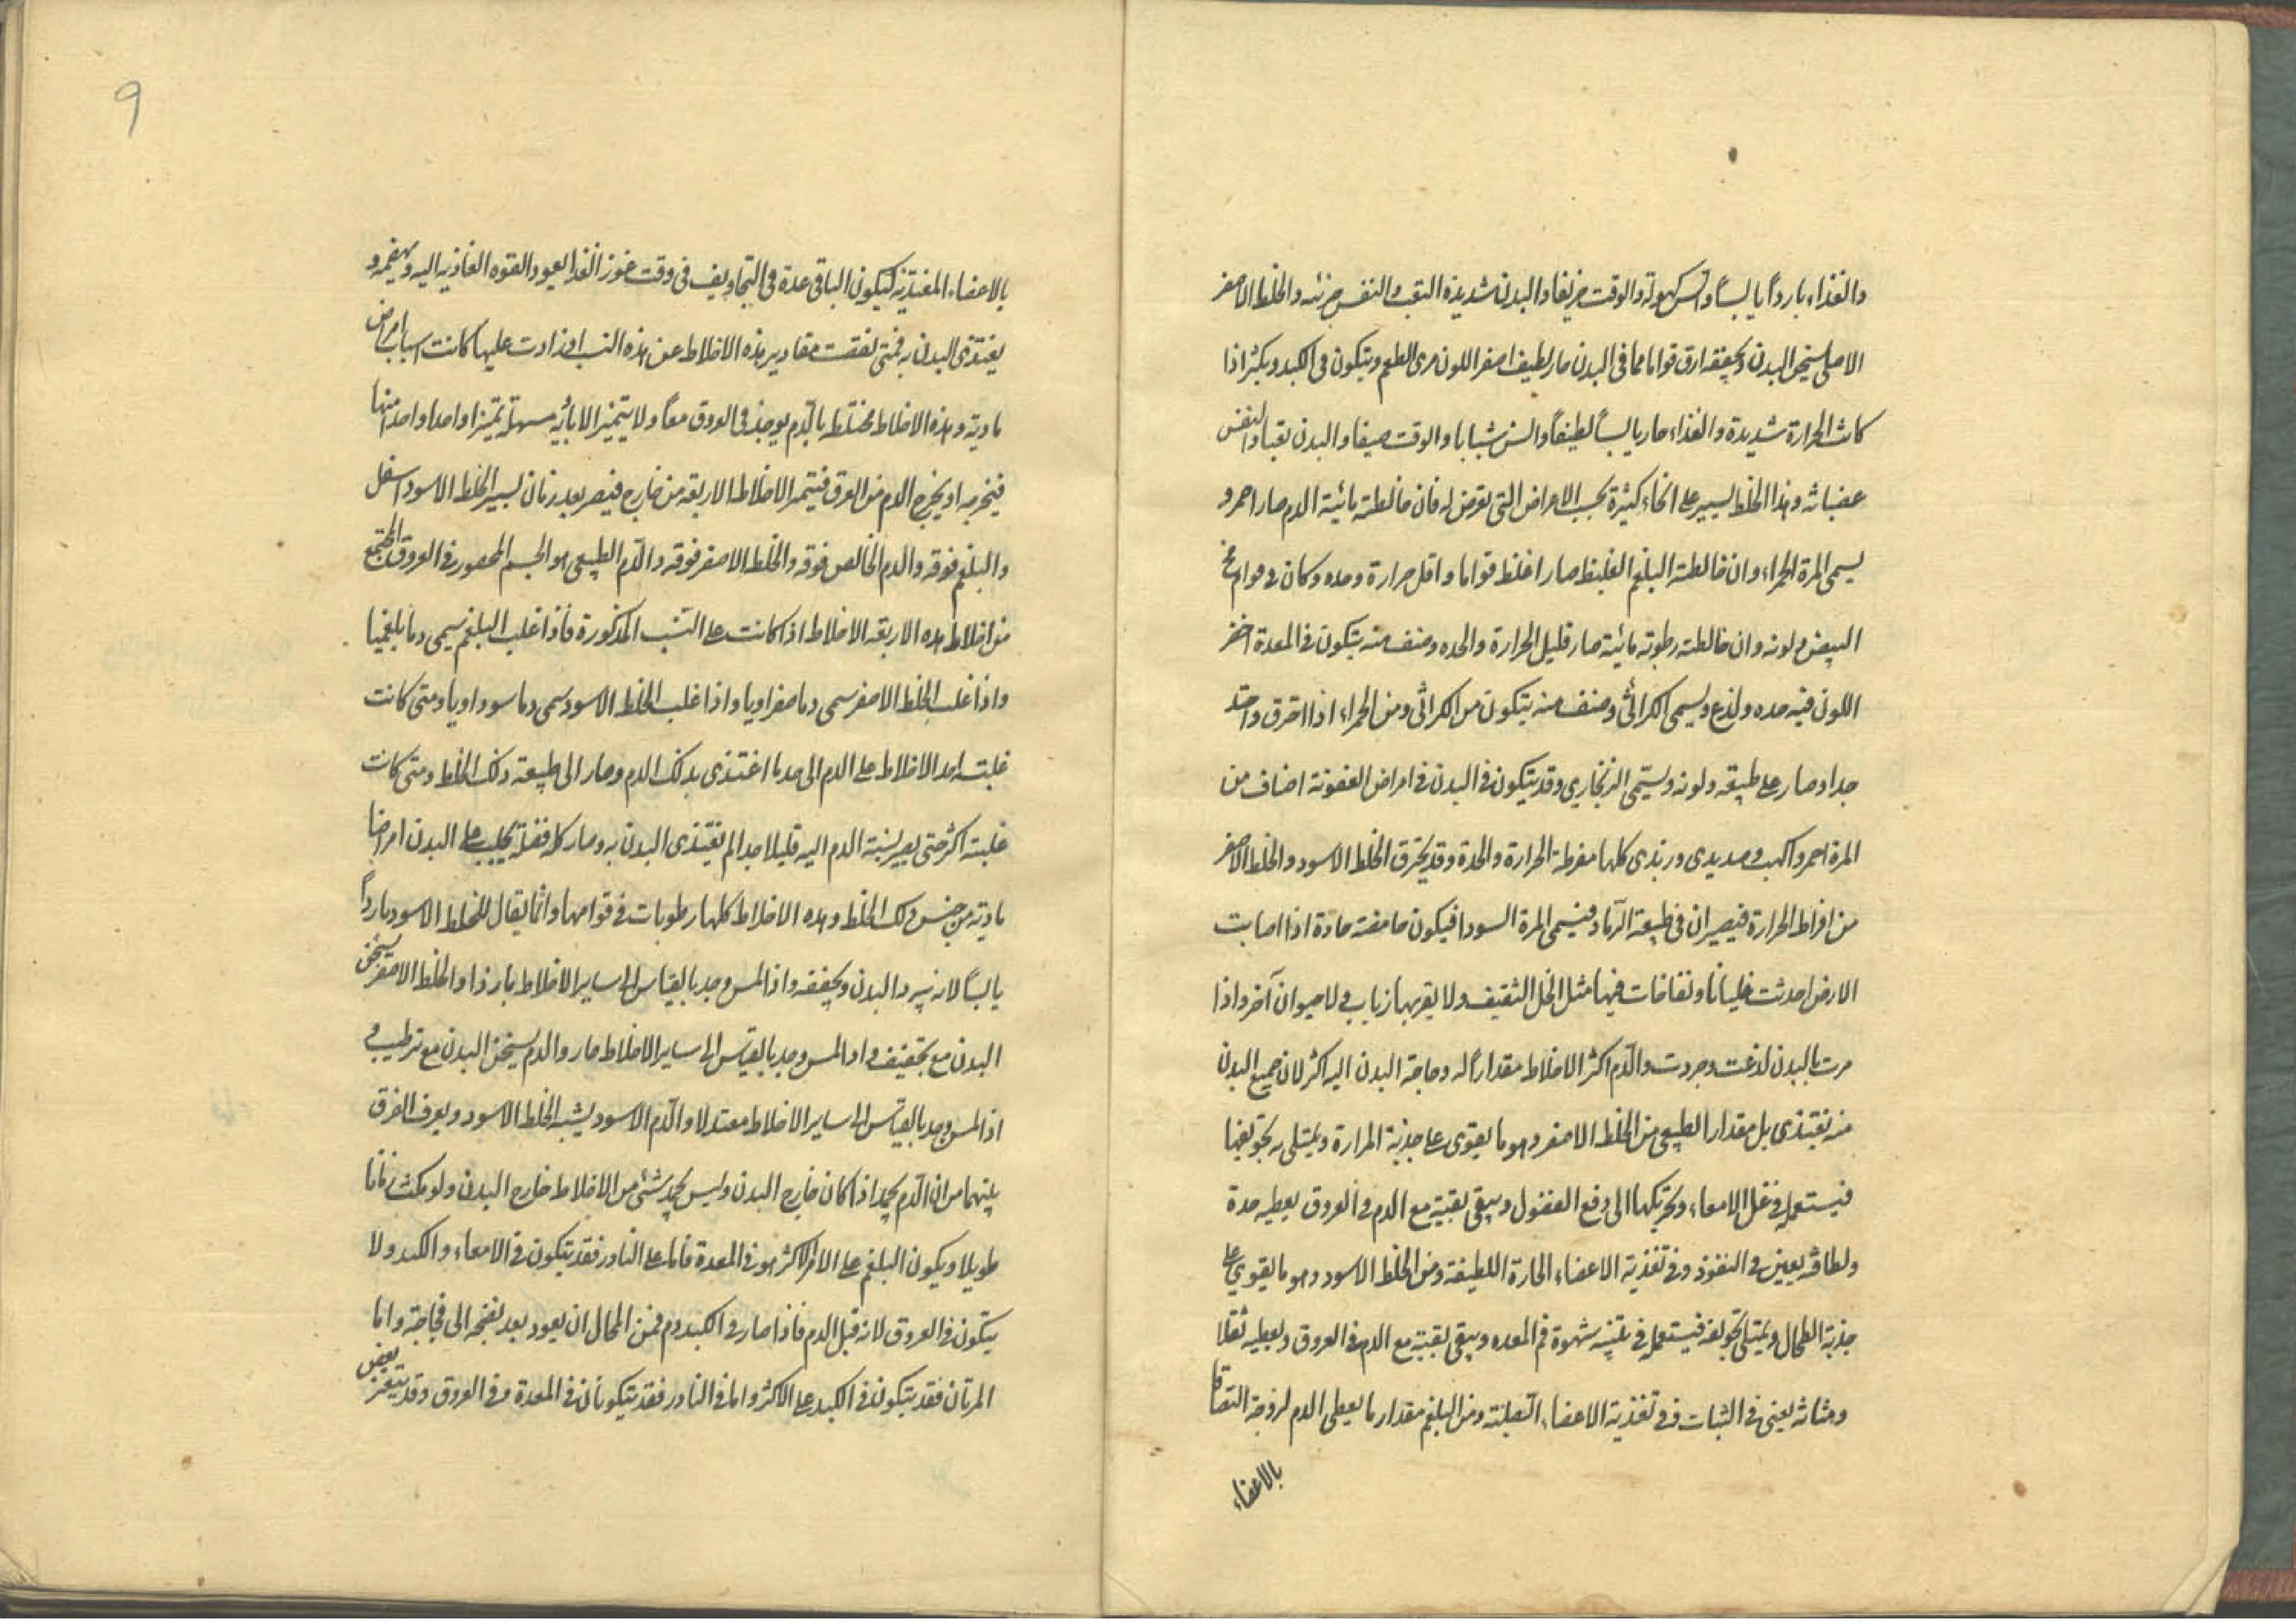 والغذاء باردا يابسا والسن كهولة والوقت خريفا والبدن شديدة التعب والنفس حزينه والخلط الاصفر
الاصلي يسخن البدن ويجففه ارق قواما مما في البدن حار لطيف اصفر اللون مري الطعم ويتكون في الكبد ويكثر اذا
كانت الحرارة شديدة والغذاء حار يابسا لطيفا والسن شبابا والوقت صيفا والبدن تعبا والنفس
غضبانه وهذا الخلط يسير على انحاء كثيرة بحسب الاعراض التي تعرض له فان خالطته مائية الدم صار احمر و
يسمى المرة الحمراء وان خالطته البلغم الغليظ صار اغلظ قواما واقل حرارة وحده وكان في قوام مح
البيض ولونه وان خالطته رطوبة مائية صار قليل الحرارة والحده وصنف منه يتكون في المعدة اخضر
اللون فيه حده ولذع ويسمى الكراثي وصنف منه يتكون من الكراثي ومن الحمراء اذا احترق واحتد
جدا وصار على طبيعه ولونه ويسمى الزنجاري وقد يتكون في البدن في امراض العفونة اضاف من
المرة احمر واكهب وصديدي ورندي كلها مفرطة الحرارة والحدة وقد يحترق الخلط الاسود والخلط الاصفر
من افراط الحرارة فيصيران في طبيعة الرماد فيسمى المرة السودا فيكون حامضة حادة اذا اصابت
الارض احدثت غليانا ونفاخات فيها مثل الخل الثقيف ولا يقربها ذباب ولا حيوان آخر واذا
مرت بالبدن لذعت وجردت والدم اكثر الاخلاط مقدارا له وحاجة البدن اليه اكثر لان جميع البدن
منه يغتذي بل مقدار الطبيعي من الخلط الاصفر وهو ما يقوى على جذبة المرارة ويمتلى به تجويفها
فيستعمل في غسل الامعاء وتحريكها الى دفع الفضول ويبقى بقيته مع الدم في العروق يعطيه حدة
ولطافه يعين في النفوذ وفي تغذية الاعضاء الحارة اللطيفة ومن الخلط الاسود وهو ما يقوي على
جذبة الطحال ويمتلى تجويفه فيستعمل في تنبيه شهوة فم المعده ويبقى بقيته مع الدم في العروق ويعطيه ثقلا
ومتانه يعنى في الثبات وفي تغذية الاعضاء الصلبة ومن البلغم مقدار ما يعطى الدم لزوجة التصاقا
بالاعضاء
٩
بالاعضاء المغتذية ليكون الباقي عدة في التجاويف في وقت عوز الغذا يعود القوه الغاذيه اليه ويهضمه و
يغتذى البدن به فمتى نقصت مقادير هذه الاخلاط عن هذه النسب او زادت عليها كانت اسباب امراض
مادية وهذه الاخلاط مختلطه بالدم يوجد في العروق معا ولا يتميز الا بادوية مسهلة تميزا واحدا واحدا منها
فيخرجه او يخرج الدم من العرق فيتميز الاخلاط الاربعه من خارج فيصير بعد زمان يسير الخلط الاسود اسفل
والبلغم فوقه والدم الخالص فوقه والخلط الاصفر فوقه والدم الطبيعي هو الجسم المحصور في العروق المجتمع
من اخلاط هذه الاربعه الاخلاط اذا كانت على النسب المذكورة فاذا غلب البلغم يسمى دما بلغميا
واذا غلب الخلط الاصفر سمى دما صفراويا واذا غلب الخلط الاسود سمى دما سوداويا ومتى كانت
غلبته احد الاخلاط على الدم الى حد ما اغتذى بذلك الدم وصار الى طبيعة ذلك الخلط ومتى كانت
غلبته اكثر حتى يصير نسبة الدم اليه قليلا جدا لم يغتذى البدن به وصار كله فضلة يجلب على البدن امراضا
مادية من جنس ذلك الخلط وهذه الاخلاط كلها رطوبات في قوامها وانما يقال للخلط الاسود باردا
يابسا لانه يبرد البدن ويجففه واذا لمس وجد بالقياس الى ساير الاخلاط باردا والخلط الاصفر يسخن
البدن مع تجفيف واذا لمس وجد بالقياس الى ساير الاخلاط حار والدم يسخن البدن مع ترطيب و
اذا لمس وجد بالقياس الى ساير الاخلاط معتدلا والدم الاسود يشبه الخلط الاسود ويعرف الفرق
بينهما من ان الدم يجمد اذا كان خارج البدن وليس يجمد شئ من الاخلاط خارج البدن ولو مكث زمانا
طويلا ويكون البلغم على الامر الاكثر هو في المعدة فاما على النادر فقد يتكون في الامعاء والكبد ولا
يتكون في العروق لانه قبل الدم فاذا صار في الكبد دم فمن المحال ان يعود بعد نضجه الى فجاجة واما
المرتان فقد يتكون في الكبد على الاكثر واما في النادر فقد يتكونان في المعدة وفي العروق وقد يتعفن بعض